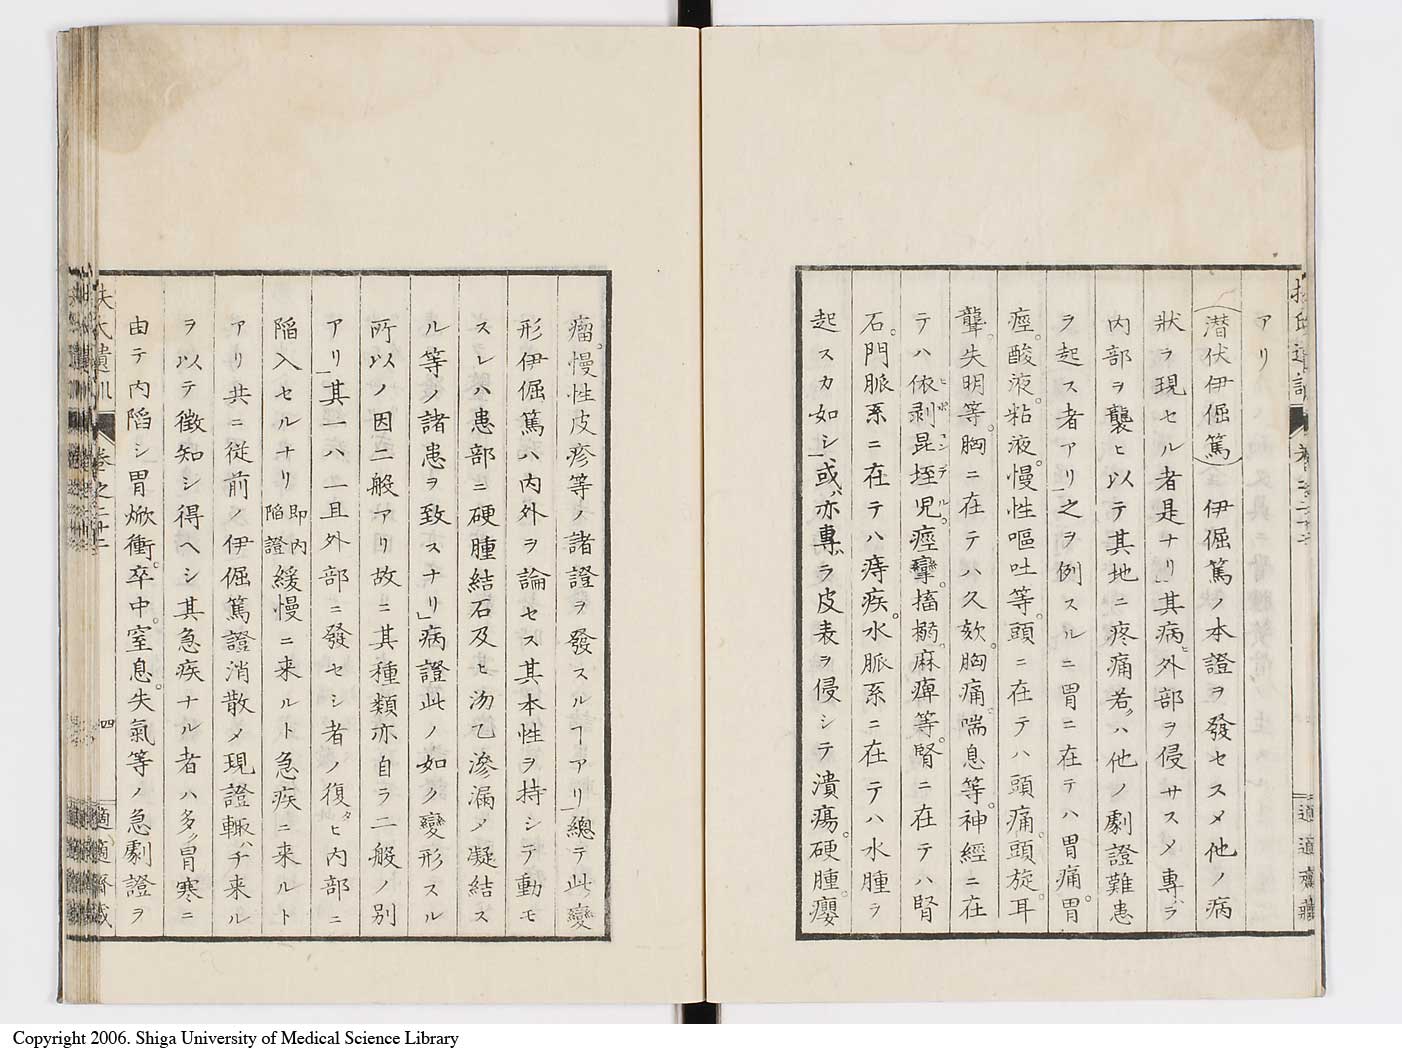 アリ
(潜伏伊倔篤) 伊倔篤ノ本證ヲ發セスメ他ノ病
狀ヲ現セル者是ナリ」其病ヒ外部ヲ侵サスメ專ハラ
内部ヲ襲ヒ以テ其地ニ疼痛若クハ他ノ劇證難患
ヲ起ス者アリ」之ヲ例スルニ胃ニ在テハ胃痛。胃
痙。酸液。粘液。慢性嘔吐等。頭ニ在テハ頭痛。頭旋。耳
聾。失明等。胸ニ在テハ久欬。胸痛。喘息等。神經ニ在
テハ依剥昆垤児。痙攣。搐搦。麻痺等。腎ニ在テハ腎
石。門脈系ニ在テハ痔疾。水脈系ニ在テハ水腫ヲ
起スカ如シ」或ハ亦專ハラ皮表ヲ侵シテ潰瘍。硬腫。瘿
瘤。慢性皮疹等ノ諸證ヲ發スルヿアリ」總テ此變
形伊倔篤ハ内外ヲ論セス其本性ヲ持シテ動モ
スレハ患部ニ硬腫結石及ヒ沕乙滲漏メ凝結ス
ル等ノ諸患ヲ致スナリ」病證此ノ如ク變形スル
所以ノ因二般アリ故ニ其種類亦自ラ二般ノ別
アリ」其一ハ一旦外部ニ發セシ者ノ復タヒ内部ニ
陥入セルナリ 即内陥證 緩慢ニ来ルト急疾ニ来ルト
アリ共ニ従前ノ伊倔篤證消散メ現證輙ハチ来ル
ヲ以テ徴知シ得ヘシ其急疾ナル者ハ多ク胃寒ニ
由テ内陥シ胃焮衝。卒中。窒息。失氣等ノ急劇證ヲ
扶氏遺訓
巻之二十二
四
適適齋藏